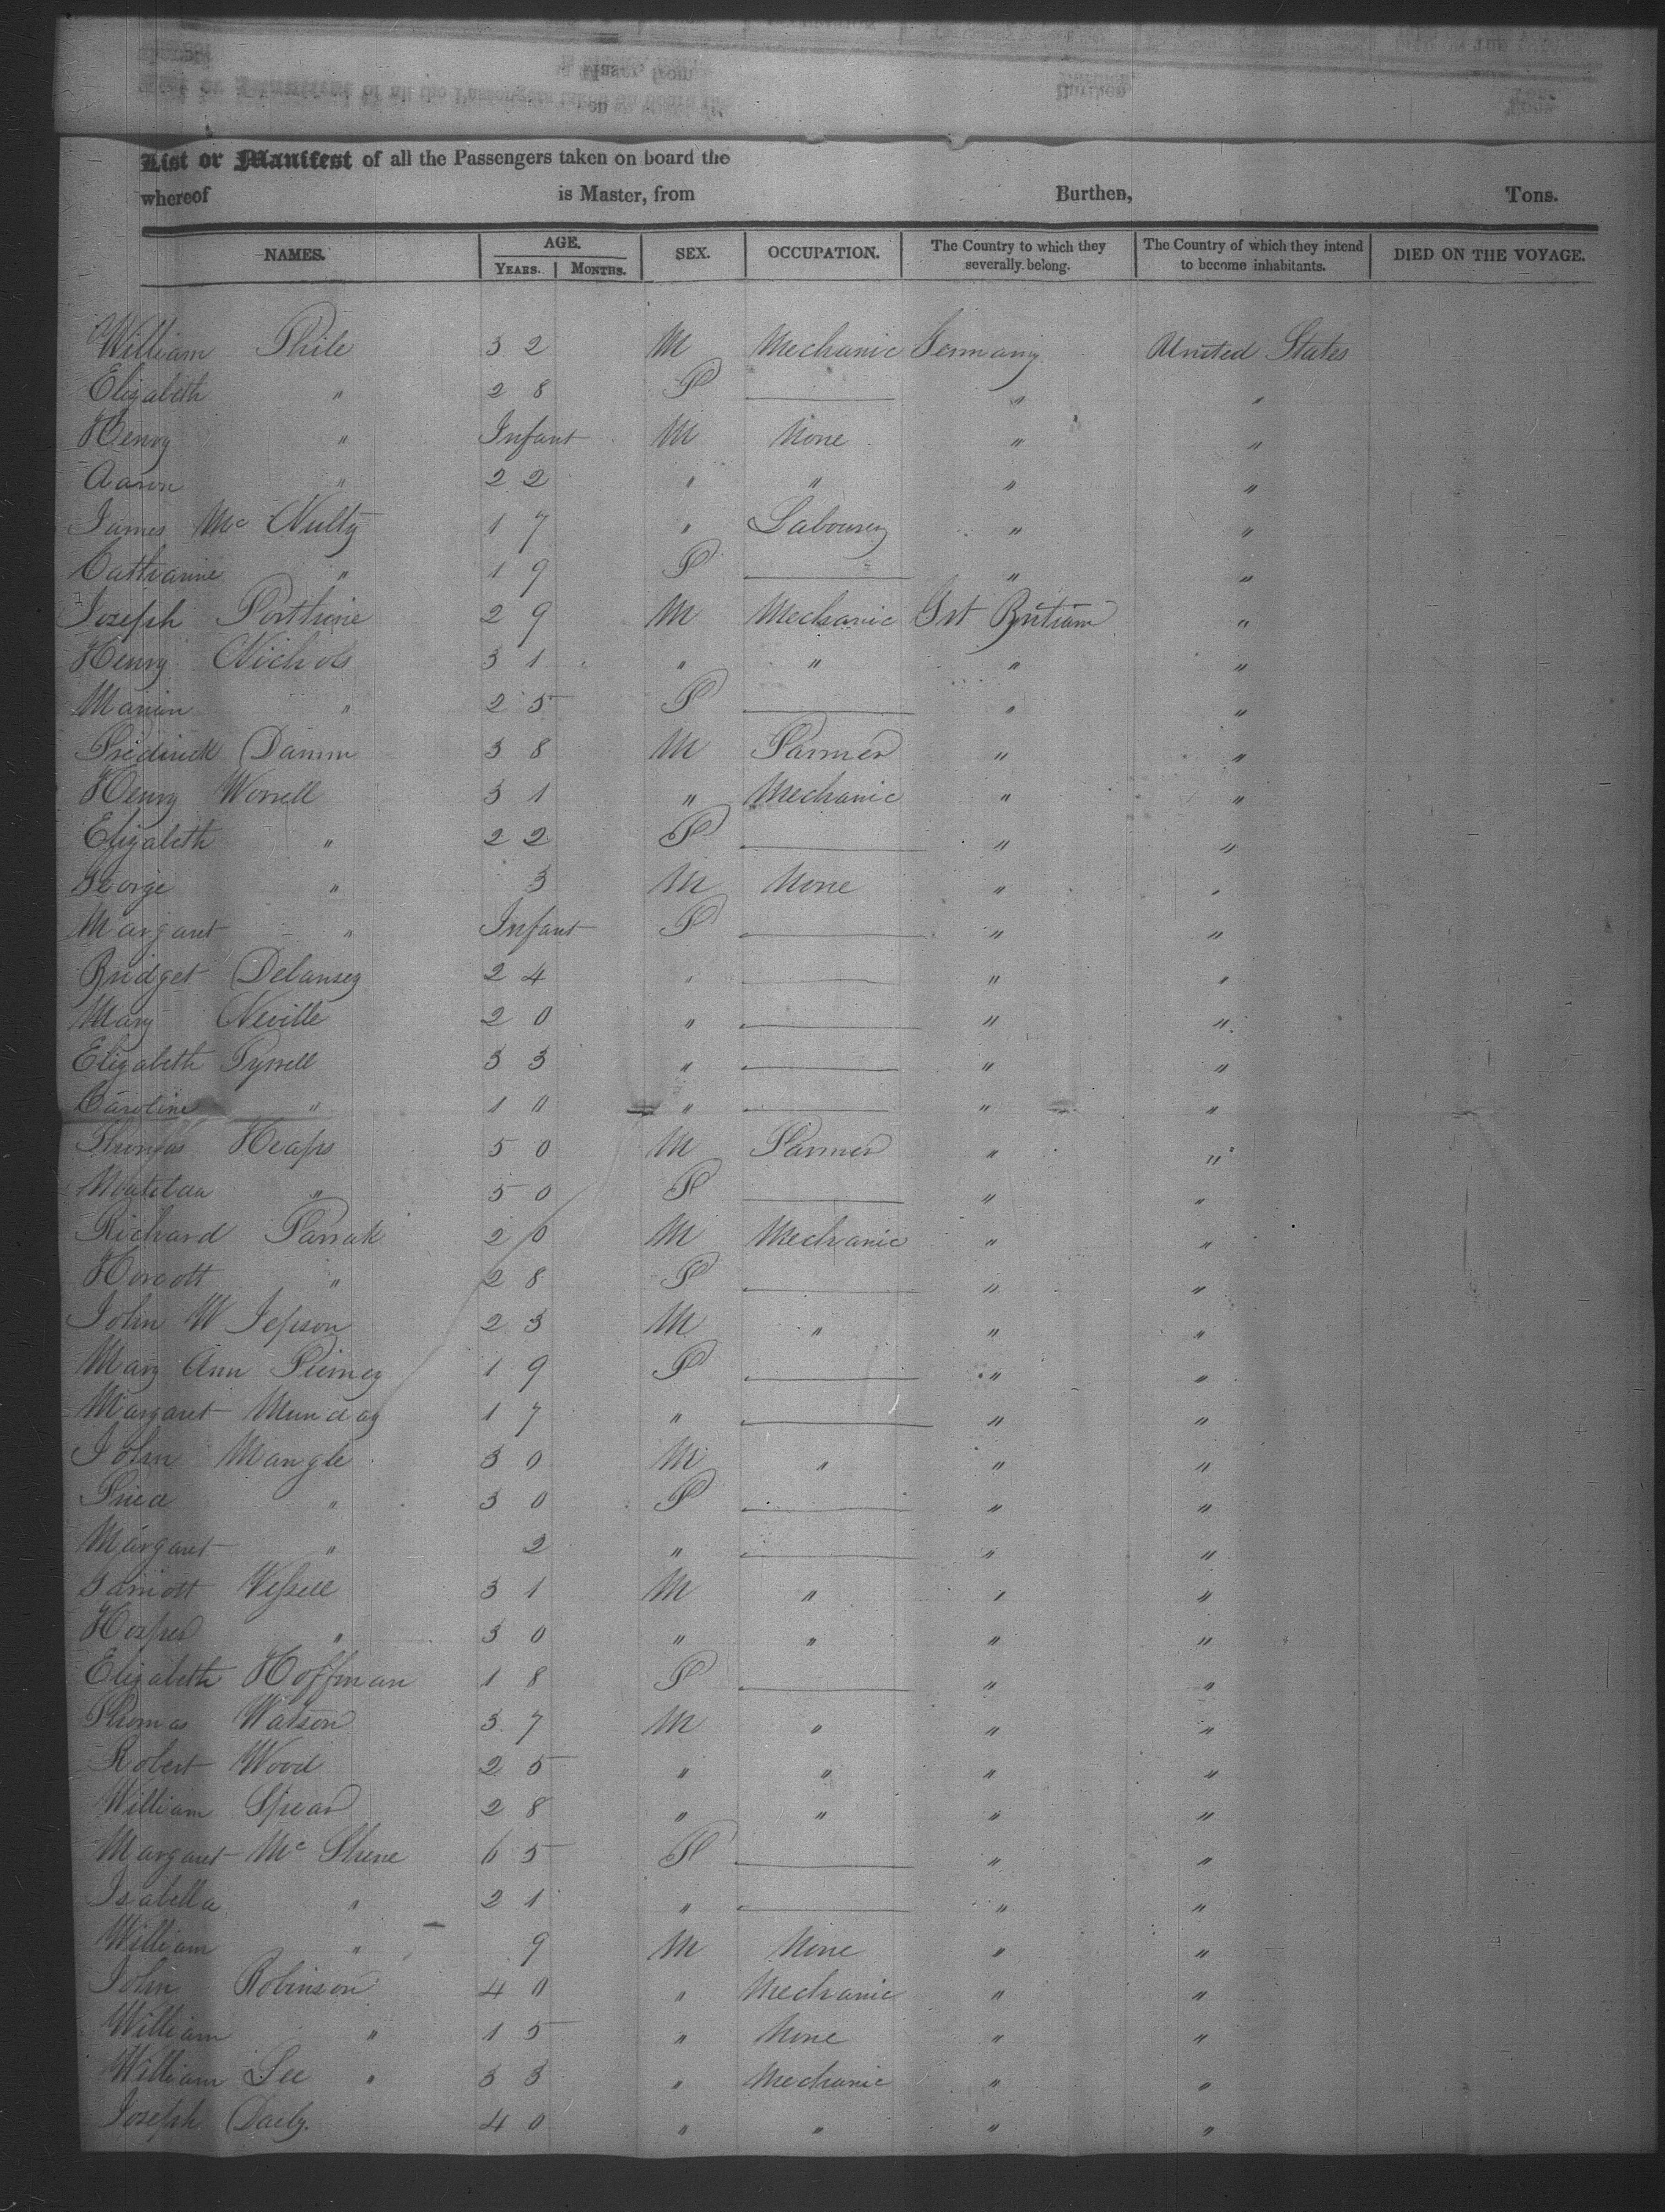 List or Manifest of all the Passengers taken on board the
whereof is Master, from Burthen, Tons.
NAMES. AGE. YEARS. MONTHS. SEX. OCCUPATION. The Country to which they severally belong. The Country of which they intend to become inhabitants. DIED ON THE VOYAGE.
William Phile 32 M Mechanic Germany United States
Elizabeth " 28 F — " "
Henry " Infant M None " "
Aaron " 22 " " " "
James McNulty 17 " Labourer " "
Catharine " 19 F — " "
Joseph 29 M Mechanic Grt Britian "
Henry Nichols 31 " " " "
Marian " 25 F — " "
Frederick Damm 38 M Farmer " "
Henry Worrell 31 " Mechanic " "
Elizabeth " 22 F — " "
George " 3 M None " "
Margaret " Infant F — " "
Bridget Delansey 24 " — " "
Mary Neville 20 " — " "
Elizabeth Tyrrell 33 " — " "
Caroline " 10 " — " "
Thomas Heaps 50 M Farmer " "
" 50 F — " "
Richard 20 M Mechanic " "
" 28 F — " "
John W Jepson 23 M " " "
Mary Ann 19 F — " "
Margaret Munday 17 " — " "
John Mangle 30 M " " "
" 30 F — " "
Margaret " 2 " — " "
31 M " " "
" 30 " " " "
Elizabeth Hoffman 18 F — " "
Thomas Watson 37 M " " "
Robert Wood 25 " " " "
William Spear 28 " " " "
Margaret Mc Shene 65 F — " "
Isabella " 21 " — " "
William " 9 M None " "
John Robinson 40 " Mechanic " "
William " 15 " None " "
William Lee " 33 " Mechanic " "
Joseph Daily. 40 " " " "